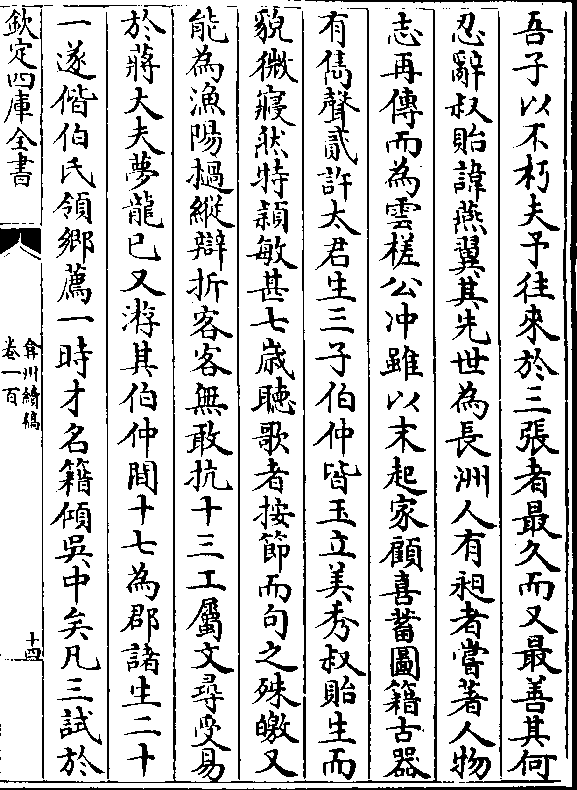 吾子以不朽夫予往來於三張者最久而又最善其何
忍辭叔貽諱燕翼其先世為長洲人有昶者嘗著人物
志再傳而為雲槎公冲雖以末起家顧喜蓄圖籍古器
有雋聲貳許太君生三子伯仲皆玉立美秀叔貽生而
貌微寢然特頴敏甚七歲聽歌者按節而句之殊皦又
能為漁陽撾縱辯折客客無敢抗十三工屬文尋受易
於蔣大夫夢龍已又游其伯仲間十七為郡諸生二十
一遂偕伯氏領鄉薦一時才名籍傾吳中矣凡三試於
欽定四庫全書
弇州續稿
卷一百
十四